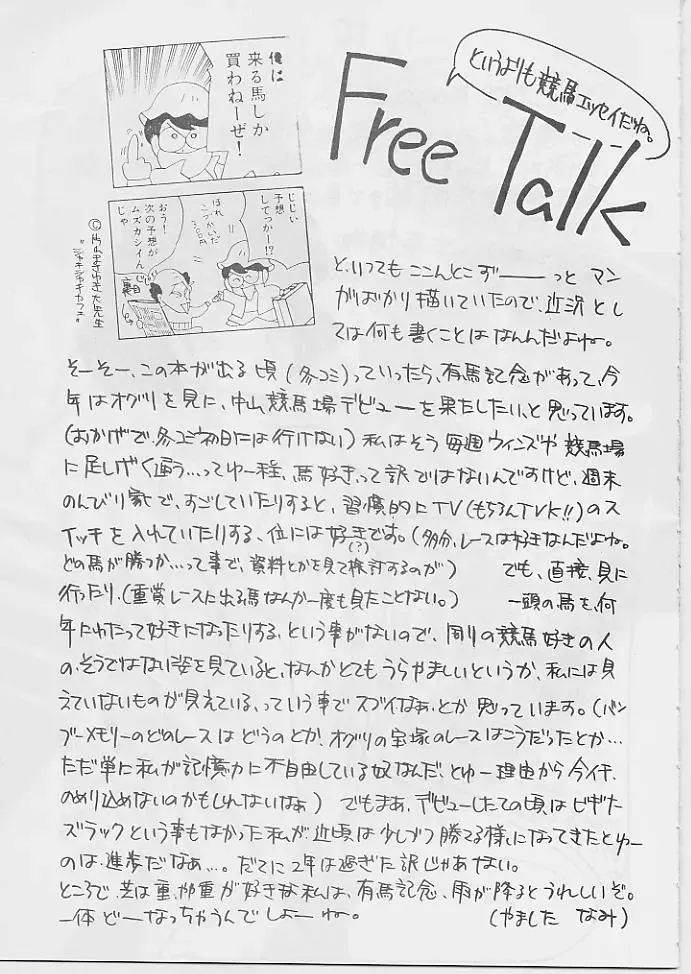 俺は
来る馬しか
買わねーぜ!
じじい
予想
してっかー!?
ほれ
こづかいだ
300円
おう!
次の予想が
ムズカシイん
じゃ
裏目
©片山まさゆき大先生
"ジャキジャキカフェ"
というよりも競馬エッセイだね。
Free Talk
と、いっても ここんとこ ずーーっと マン
がばかり描いていたので、近況 とし
ては何も書くことは なんんだよね。
そーそー、この本が出る頃 (冬コミ) っていったら、有馬記念があって、今
年は オグリ を 見に、中山競馬場デビューを 果たしたい、と 思っています。
(おかげで、冬コミ初日には行けない) 私は そう 毎週 ウィンズや 競馬場
に足しげく通う…ってゆー程、馬好きって訳ではないんですけど、週末
のんびり家で、すごしていたりすると、習慣的に TV (もちろんTVK!!) のス
イッチを 入れていたりする、位には 好きです。(多分、レースは好きなんだよね。
(?)
どの馬が勝つか…って事で、資料とかを見て検討するのが) でも、直接、見に
行ったり、(重賞レースに出る馬なんか一度も見たことない。) 一頭の馬を、何
年にわたって好きになったりする、という事がないので、周りの競馬好きの人
の、そうではない姿を見ていると、なんかとても うらやましいというか、私には見
えていないものが見えている、っていう事で スゴイなぁ、とか 思っています。(バン
ブーメモリーのどのレースは どうのとか、オグリの宝塚のレースはこうだったとか…
ただ単に私が記憶力に不自由している奴なんだ、とゆー理由から 今イチ、
のめり込めないのかもしれないなぁ) でもまあ、デビューしたての頃は ビギナ
ーズラックという事もなかった私が、近頃は少しづつ勝てる様になってきたとゆー
のは、進歩だなぁ…。だてに2年は過ぎた訳じゃあない。
ところで、芝は重、やや重が好きな私は、有馬記念、雨が降るとうれしいぞ。
一体 どーなっちゃうんでしょーね。 (やました なみ)